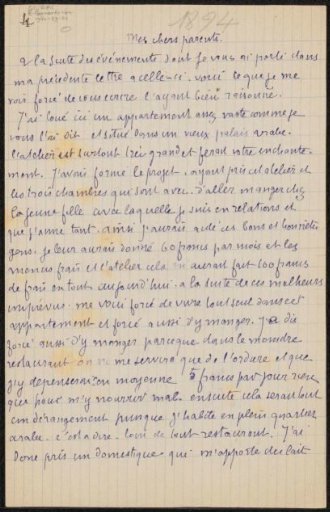 1894
Mes chers parents.
A la suite des événements dont je vous ai parlé dans
ma précédente lettre a celle-ci. voici ce que je me
vois forcé de vous écrire l'ayant bien raisonné.
J'ai loué ici un appartement assez vaste comme je
vous l'ai dit et situé dans un vieux palais arabe.
l'atelier est surtout très grand et ferait votre enchante-
ment. J'avais formé le projet, ayant pris cet atelier et
les trois chambres qui sont avec. d'aller manger chez
la jeune fille avec laquelle je suis en relations et
que j'aime tant. ainsi j'aurais aidé ces bons et honnêtes
gens. je leur aurais donné 60 francs par mois et les
menus frais et l'atelier cela m'aurait fait 100 francs
de frais en tout. aujourd'hui. a la suite de ces malheurs
imprévus. me voici forcé de vivre tout seul dans cet
appartement et forcé aussi d'y manger. J'ai dis
forcé aussi d'y manger parceque dans le moindre
restaurant on ne me servira que de l'ordure et que
j'y dépenserai en moyenne 5 francs par jour rien
que pour m'y nourrir mal. ensuite cela serait tout
un dérangement puisque j'habite en plein quartier
arabe. c'est a dire. loin de tout restaurant. J'ai
donc pris un domestique qui m'apporte du lait